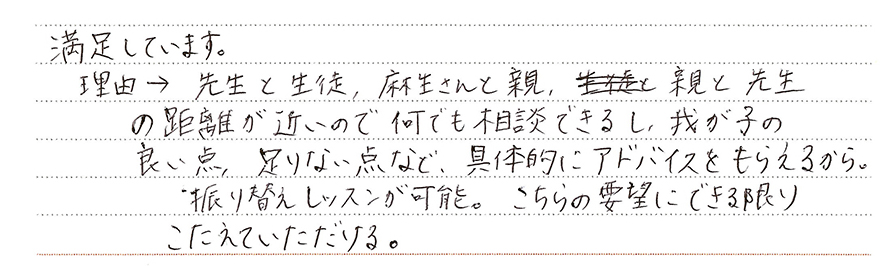 満足しています。
理由→ 先生と生徒, 麻生さんと親, 生徒と 親と先生
の距離が近いので何でも相談できるし, 我が子の
良い点, 足りない点など、具体的にアドバイスをもらえるから。
・振り替えレッスンが可能。 こちらの要望にできる限り
こたえていただける。